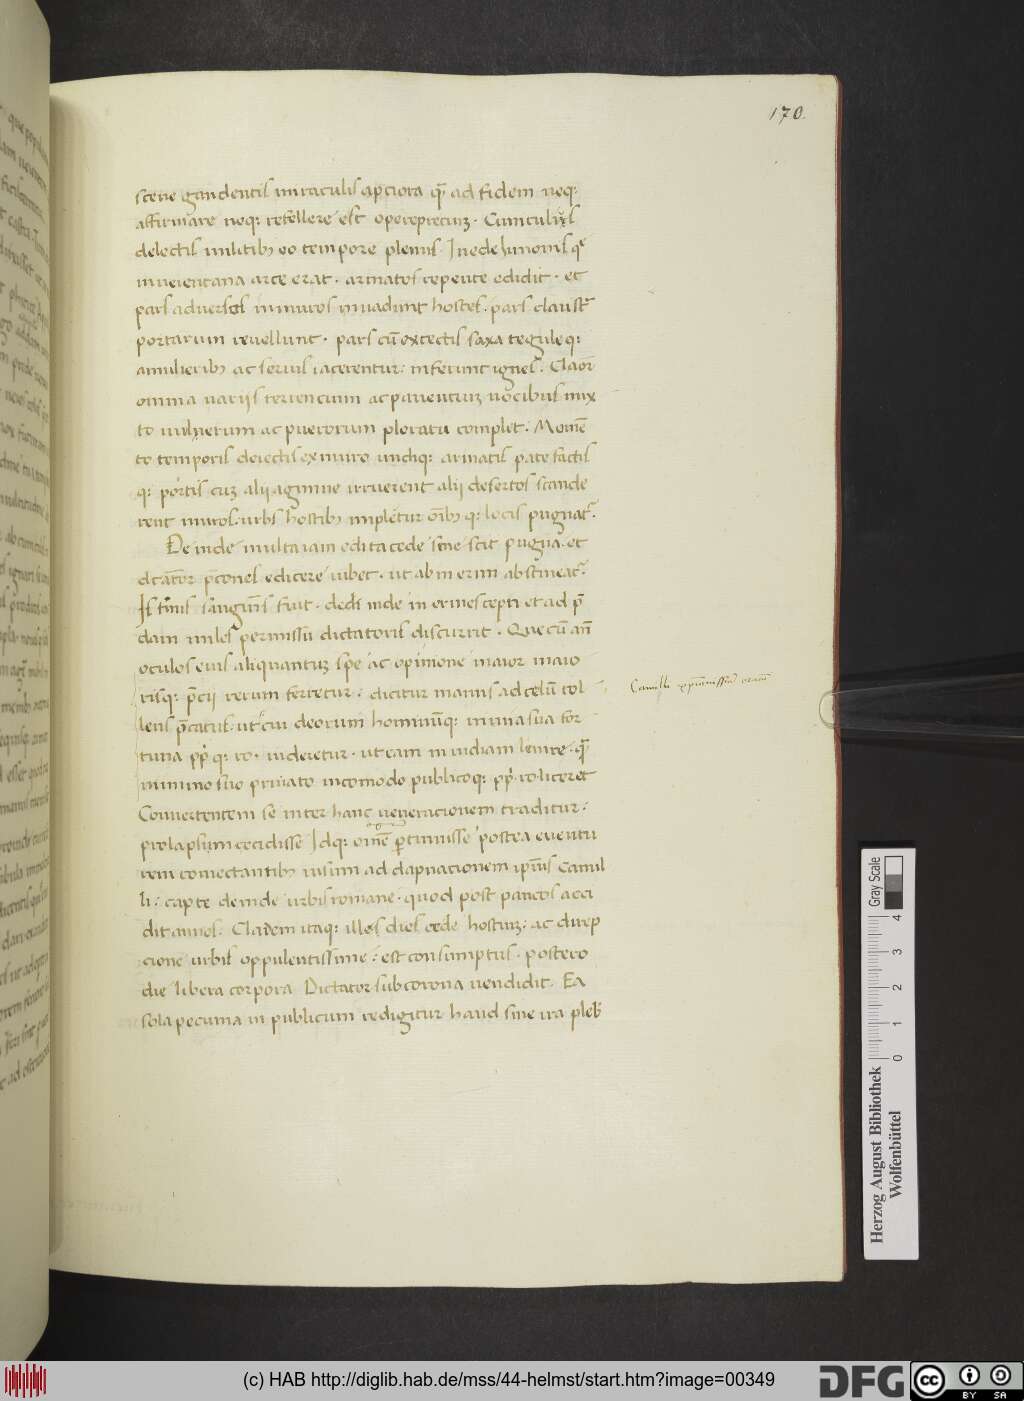 170.
scene gaudentis miraculis apciora q̄ ad fidem neq:
affirmare neq: refellere est opereprecium. Cuniculus
delectis militibꝫ eo tempore plenus. In ede Iunonis q̄
in veientana arce erat. armatos repente edidit. et
pars adversos in muros invadunt hostes. pars claustr̄
portarum revellunt. pars cū ex tectis saxa teguleq:
a mulieribꝫ ac servis iacerentur: inferunt ignes. Clāor
omnia variis terrencium ac paventuꝫ vocibus mix
to mulierum ac puerorum ploratu complet. Momē
to temporis deiectis ex muro undiq: armatis pate factis
q: portis cuꝫ alii agmine irruerent alii desertos scande
rent muros. urbs hostibꝫ impletur oībꝫ q: locis pugnat̄.
De inde multa iam edita cede senescit pugna. et
dictator p̄cones edicere iubet. ut ab inermi abstineat̄.
Is finis sanguinis fuit. dedi inde inermes cepti et ad p̄
dam miles permissu dictatoris discurrit. Que cū an̄
oculos eius aliquantuꝫ spe ac opinione maior maio
risq: p̄cii rerum ferretur. dicitur manus ad celū tol
lens p̄catus. ut si cui deorum hominūq: nimia sua for
tuna pp̄q: ro. videretur. ut eam invidiam lenire. q̄
minimo suo privato incomodo publicoq: pp̄. ro. liceret
Convertentem se inter hanc veneracionem traditur:
prolapsum cecidisse Idq: omē pertinuisse postea eventu
rem coniectantibꝫ visum ad dapnacionem ipsius Camil
li: capte deinde urbis romane. quod post paucos acci
dit annos. Cladem itaq: illes dies cede hostiuꝫ: ac direp
cione urbis oppulentissime: est consumptus. postero
die libera corpora Dictator sub corona vendidit. Ea
sola pecunia in publicum redigitur haud sine ira pleb̄
Camilli
Herzog August Bibliothek
Wolfenbüttel
0 1 2 3 4 Gray Scale
(c) HAB http://diglib.hab.de/mss/44-helmst/start.htm?image=00349
DFG
cc BY SA